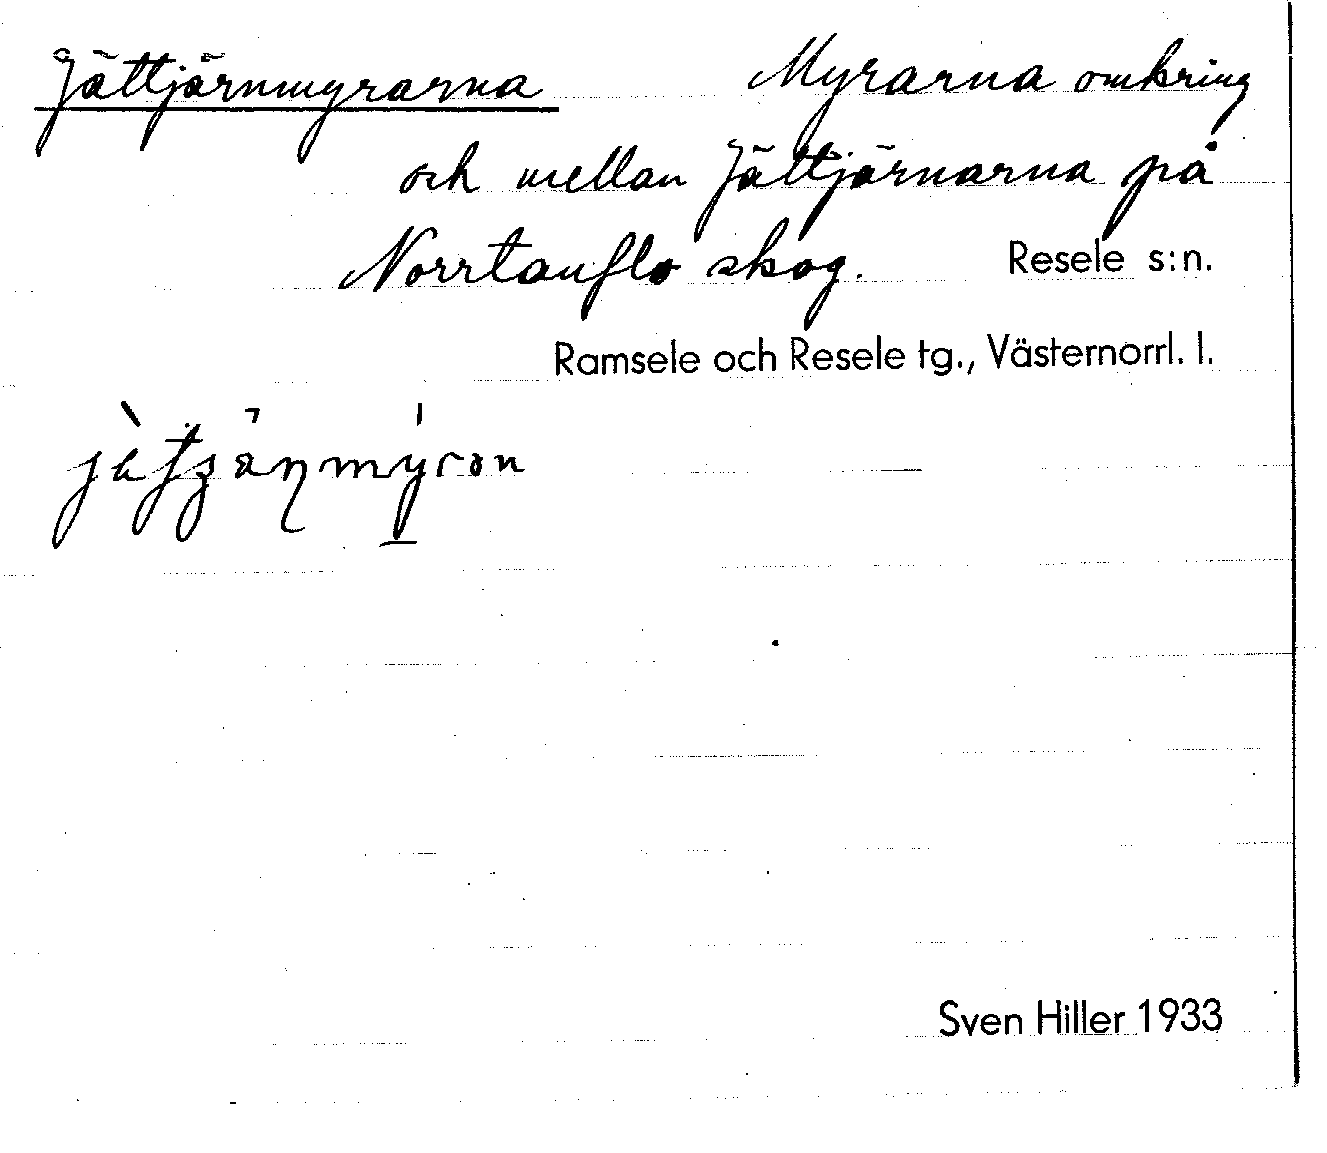 Jättjärnmyrarna Myrarna omkring
och mellan Jättjärnarna på
Norrtanflo skog. Resele s:n.
Ramsele och Resele tg., Västernorrl. l.
Sven Hiller 1933